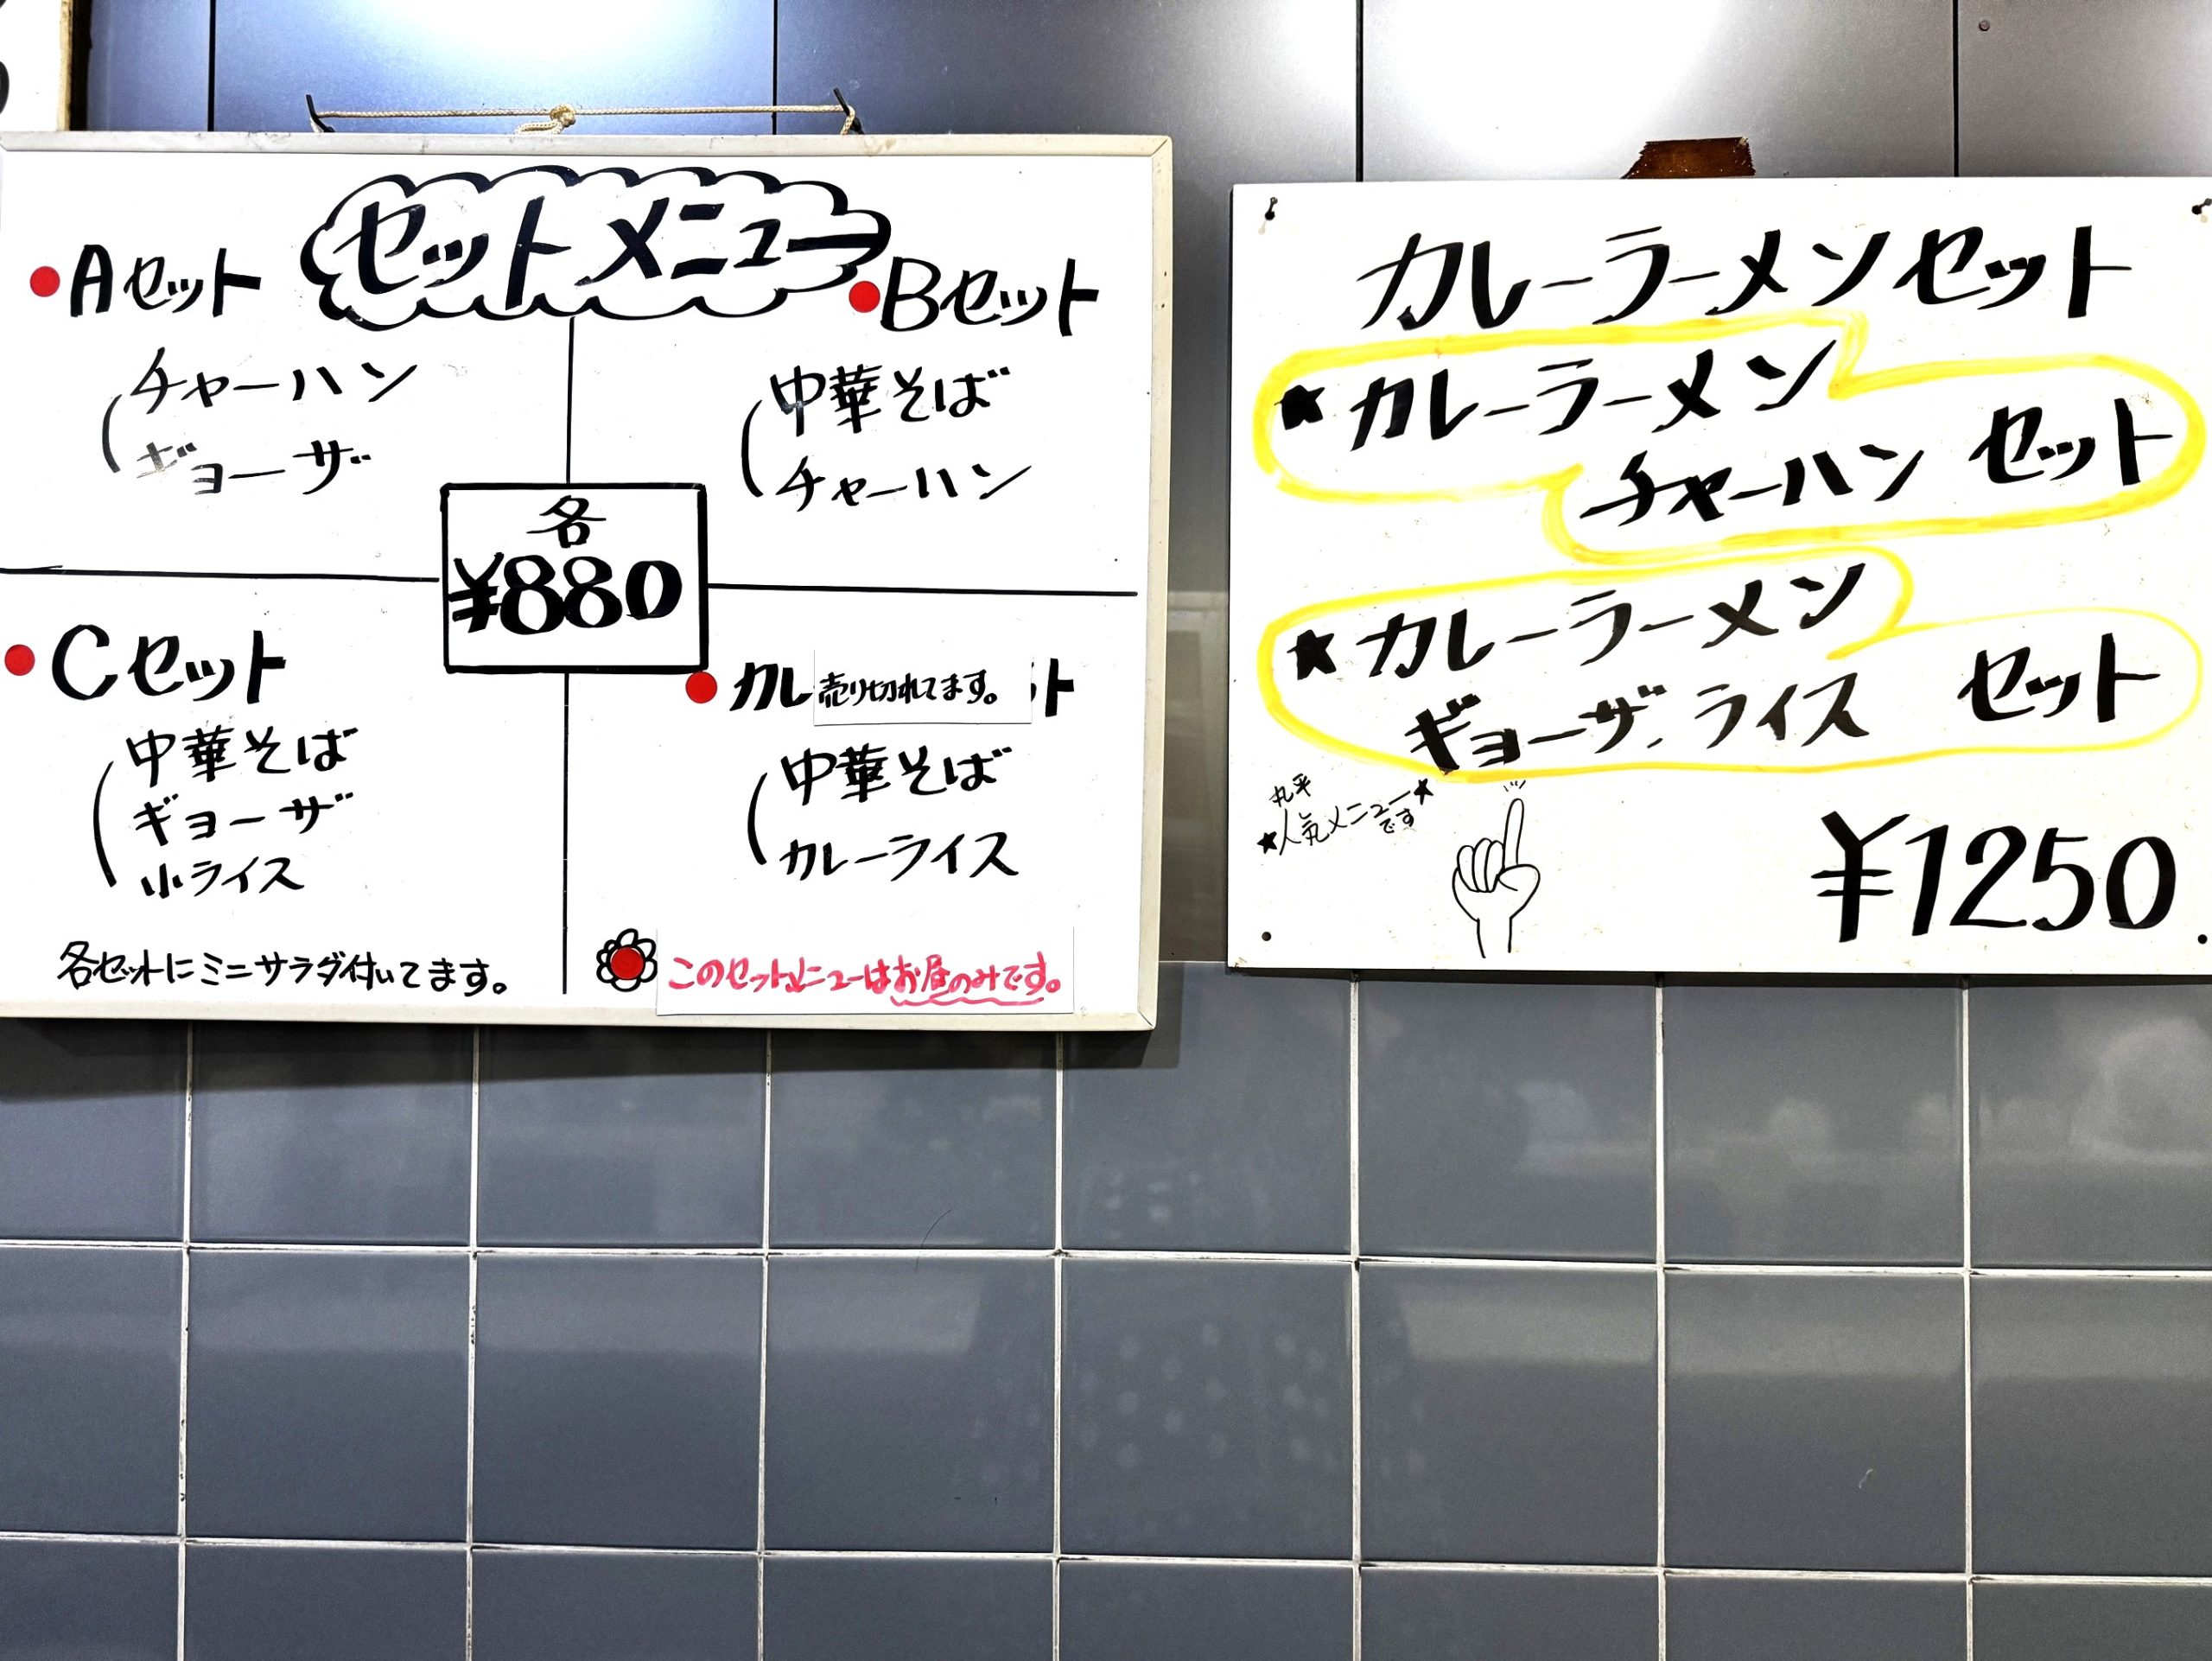 セットメニュー
●Aセット
チャーハン
ギョーザ
●Bセット
中華そば
チャーハン
各
¥880
●Cセット
中華そば
ギョーザ
小ライス
●カレ売り切れてます。ト
中華そば
カレーライス
各セットにミニサラダ付いてます。
このセットメニューはお昼のみです。
カレーラーメンセット
★カレーラーメン
チャーハン セット
★カレーラーメン
ギョーザ、ライス セット
丸平
★人気メニュー★
です
¥1250